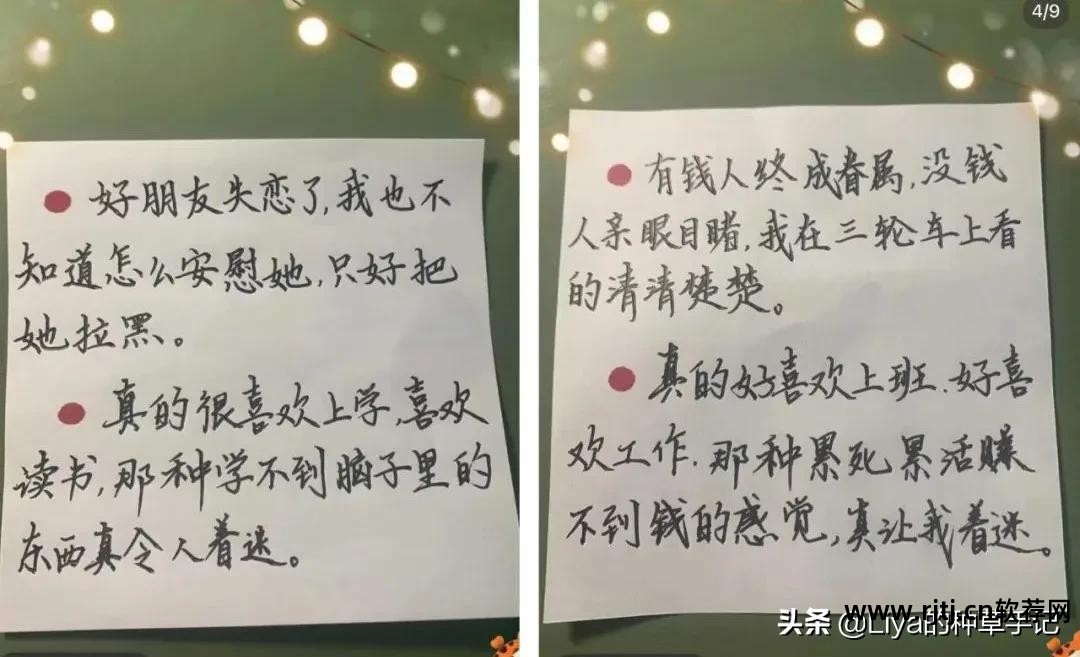 好朋友失恋了,我也不
知道怎么安慰她,只好把
她拉黑。
真的很喜欢上学,喜欢
读书,那种学不到脑子里的
东西真令人着迷。
4/9
有钱人终成眷属,没钱
人亲眼目睹,我在三轮车上看
的清清楚楚。
真的好喜欢上班、好喜
欢工作.那种累死累活赚
不到钱的感觉,真让我着迷。
www.rjtj.cn软荐网
头条 @Liya的种草手记